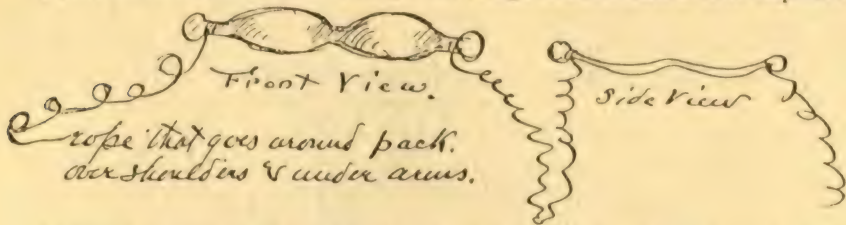 Front View.
Side View
rope that goes around pack.
over shoulders & under arms.